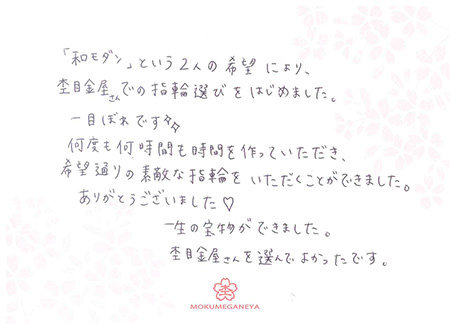 「和モダン」という2人の希望により、
杢目金屋さんでの指輪選びをはじめました。
一目ぼれです✨
何度も何時間も時間を作っていただき、
希望通りの素敵な指輪をいただくことができました。
ありがとうございました♡
一生の宝物ができました。
杢目金屋さんを選んでよかったです。
杢
MOKUMEGANEYA